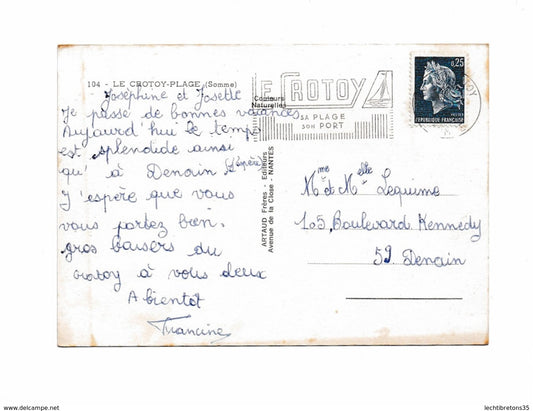 104 - LE CROTOY-PLAGE (Somme)
Joséphine et Josette
Je passe de bonnes vacances
Aujourd'hui le temps
est splendide ainsi
qu' à Denain j'espère
J'espère que vous
vous portez bien.
gros baisers du
crotoy à vous deux
A bientôt
Francine
Couleurs
Naturelles
ARTAUD Frères - Editeurs
Avenue de la Close - NANTES
LE CROTOY
SA PLAGE
SON PORT
0,25
REPUBLIQUE FRANÇAISE
Mme et Melle Lequime
105, Boulevard Kennedy
59 Denain
lechtibretons35